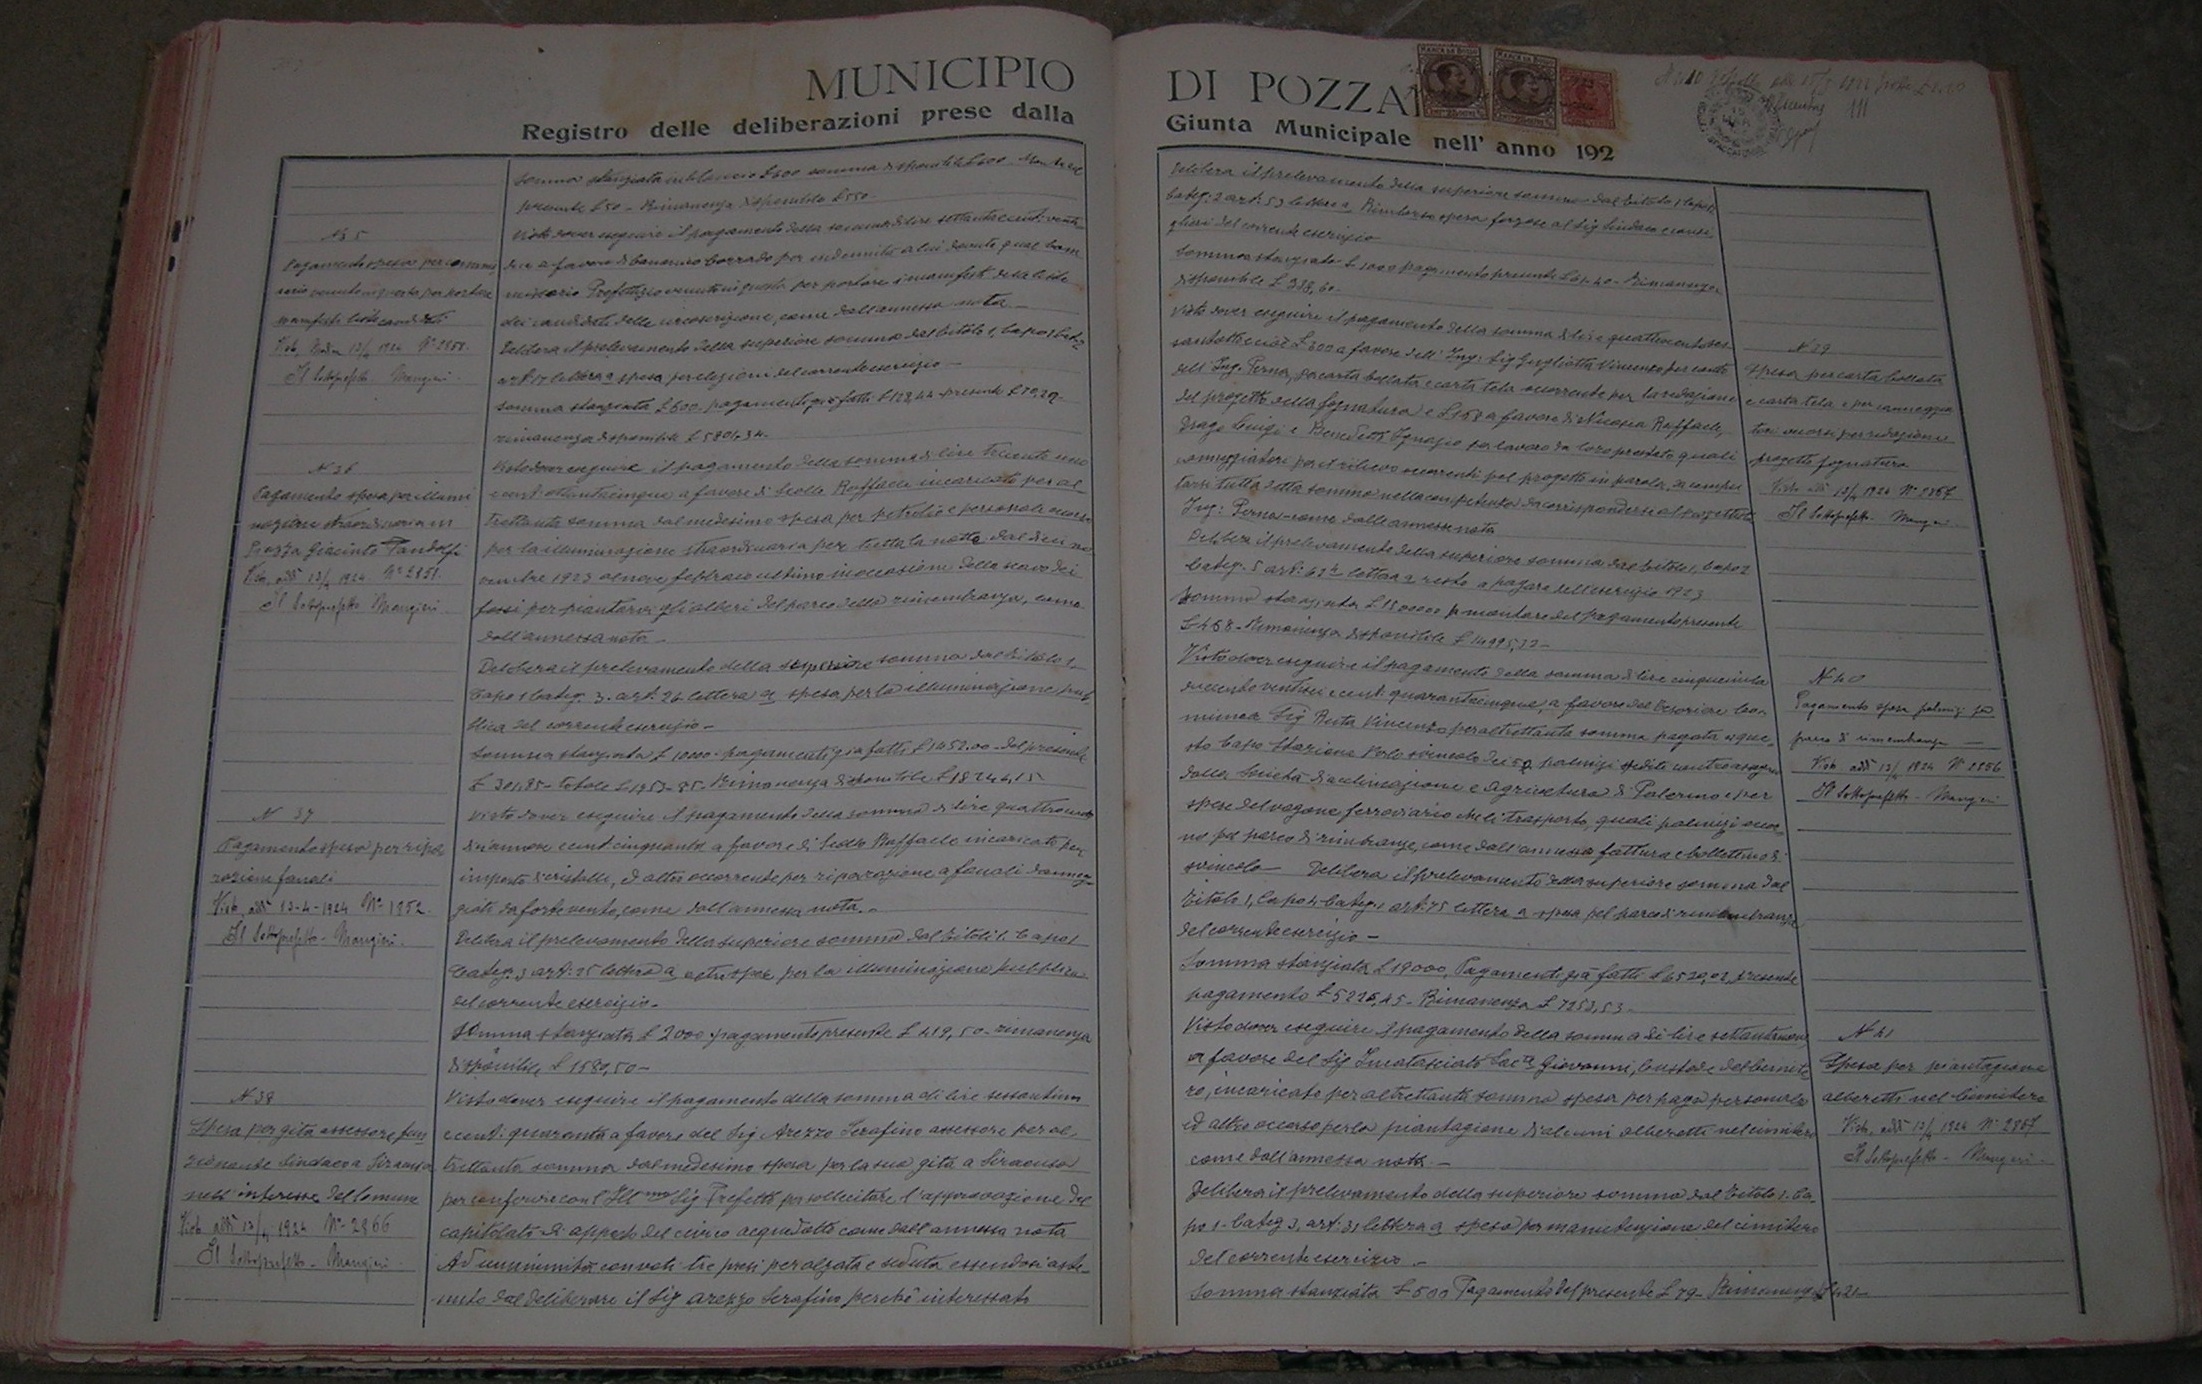 MUNICIPIO
Registro delle deliberazioni prese dalla
somma stanziata in bilancio £ 600 somma disponibile £ 600
presente £ 50 - Rimanenza disponibile £ 550 -
N 35
Pagamento spesa per commis
sario venuto in questa per portare
manifesti liste candidati
Visto, 12/4 1924 N°
Il Sottoprefetto - Mangini -
Visto dover eseguire il pagamento della somma di lire settanta cent: venti
due a favore di Corrado per indennità a lui dovuta qual Com
missario Prefettizio venuto in questa per portare i manifesti della liste
dei candidati della circoscrizione, come dall'annessa nota -
Delibera il prelevamento della superiore somma dal titolo 1, capo 1 Categ. 2
art. 17 lettera a spesa per elezioni del corrente esercizio -
somma stanziata £ 600 pagamenti già fatti £ presente £
rimanenza disponibile £
N 36
Pagamento spesa per illumi
nazione straordinaria in
Piazza Giacinto Pandolfi
Visto, addì 12/4 1924 N° 2851
Il Sottoprefetto Mangini -
Visto dover eseguire il pagamento della somma di lire trecento uno
e cent. ottantacinque a favore di Scollo Raffaele incaricato per al-
trettanta somma dal medesimo spesa per petrolio e personale occorso
per la illuminazione straordinaria per tutta la notte dal dieci no
vembre 1923 al nove febbraio ultimo in occasione dello scavo dei
fossi per piantarvi gli alberi del parco della rimembranza, come
dall'annessa nota -
Delibera il prelevamento della superiore somma dal titolo 1,
Capo 1 Categ. 3. art. 26 lettera a spesa per la illuminazione pub
blica del corrente esercizio -
Somma stanziata £ pagamenti già fatti £ 1452.00 - del presente
£ 301,85 - totale £ 1753-85 - Rimanenza disponibile £
N 37
Pagamento spesa per ripa
razione fanali
Visto, addì 12-4-1924 N° 2852
Il Sottoprefetto - Mangini -
Visto dover eseguire il pagamento della somma di lire quattrocento
diciannove cent. cinquanta a favore di Scollo Raffaele incaricato per
importo di cristalli, ed altro occorrente per riparazione a fanali danneg-
giati da forte vento, come dall'annessa nota. -
Delibera il prelevamento della superiore somma dal titolo 1. Capo 1
Categ. 3 art: 25 lettera a altre spese per la illuminazione pubblica
del corrente esercizio -
Somma stanziata £ 2000 pagamento presente £ 419,50 - rimanenza
disponibile £ 1580,50 -
N 38
Spesa per gita assessore fun
zionante Sindaco a Siracusa
nell'interesse del Comune
Visto addì 12/4 1924 N° 2866
Il Sottoprefetto - Mangini -
Visto dover eseguire il pagamento della somma di lire sessantuno
e cent: quaranta a favore del Sig. Arezzo Serafino assessore per al-
trettanta somma dal medesimo spesa per la sua gita a Siracusa
per conferire con l'Ill.mo Sig. Prefetto per sollecitare l'approvazione del
capitolato di appalto del civico acquedotto come dall'annessa nota
Ad unanimità con voti tre presi per alzata e seduta essendosi aste-
nuto dal deliberare il Sig. Arezzo Serafino perchè interessato
DI POZZAL
Giunta Municipale nell' anno 192
MARCA DA BOLLO
MARCA DA BOLLO
111
Delibera il prelevamento della superiore somma dal titolo 1 Capo 1
Categ. 2 art. 53 lettera a Rimborso spese forzose al Sig Sindaco e consi-
glieri del corrente esercizio
Somma stanziata £ 1000 pagamento presente £ 61.40 - Rimanenza
disponibile £ 938,60 -
Visto dover eseguire il pagamento della somma di lire quattrocentoses-
santotto cioè £ 300 a favore dell' Ing. Sig. Gugliotta Vincenzo per conto
dell' Ing. Perna, per carta bollata e carta tela occorrente per la redazione
del progetto della fognatura e £ 168 a favore di Nicosia Raffaele,
Drago Luigi e Benedetto Ignazio per lavoro da loro prestato quali
canneggiatori per il rilievo occorrenti pel progetto in parola, da compu
tarsi tutta detta somma nella competenza da corrispondersi al progettista
Ing: Perna - come dalle annesse nota
Delibera il prelevamento della superiore somma dal titolo 1, Capo 2
Categ. 5 art. 62 lettera a resto a pagare dell'esercizio 1923
Somma stanziata £ ammontare del pagamento presente
£ 468 - Rimanenza disponibile £
N 39
Spesa per carta bollata
e carta tela e per canneggia
tori occorsi per redazione
progetto fognatura
Visto addì 12/4 1924 N° 2867
Il Sottoprefetto - Mangini -
Visto dover eseguire il pagamento della somma di lire cinquemila
duecentoventisei e cent. quarantacinque, a favore del Tesoriere Co-
munale Sig. Auta Vincenzo per altrettanta somma pagata a que-
sto Capo Stazione per lo svincolo dei 50 palmizi spediti contro assegno
dalla Società di acclimazione e Agricoltura di Palermo e per
spese del vagone ferroviario che li trasportò, quali palmizi occor-
no pel parco di rimembranze, come dall'annessa fattura e bollettino di
svincolo - Delibera il prelevamento della superiore somma dal
titolo 1, Capo 4 Categ. 1 art. 75 lettera a spesa pel parco di rimembranza
del corrente esercizio -
Somma stanziata £ 19000, Pagamenti già fatti £ 6520,02, presente
pagamento £ 5226,45 - Rimanenza £ 7253,53 -
N 40
Pagamento spesa palmizi pel
parco di rimembranza -
Visto addì 12/4 1924 N° 2856
Il Sottoprefetto - Mangini
Visto dover eseguire il pagamento della somma di lire settantanove
a favore del Sig. Incatasciato Giovanni, Custode del Cimite
ro, incaricato per altrettanta somma spesa per paga personale
ed altro occorso per la piantagione di alcuni alberetti nel cimitero
come dall'annessa nota. -
Delibera il prelevamento della superiore somma dal titolo 1. Ca-
po 1 - Categ 3, art: 31 lettera a spesa per manutenzione del cimitero
del corrente esercizio -
Somma stanziata £ 500 Pagamento del presente £ 79 - Rimanenza £ 421 -
N 41
Spesa per piantagione
alberetti nel Cimitero
Visto, addì 12/4 1924 N° 2857
Il Sottoprefetto - Mangini -